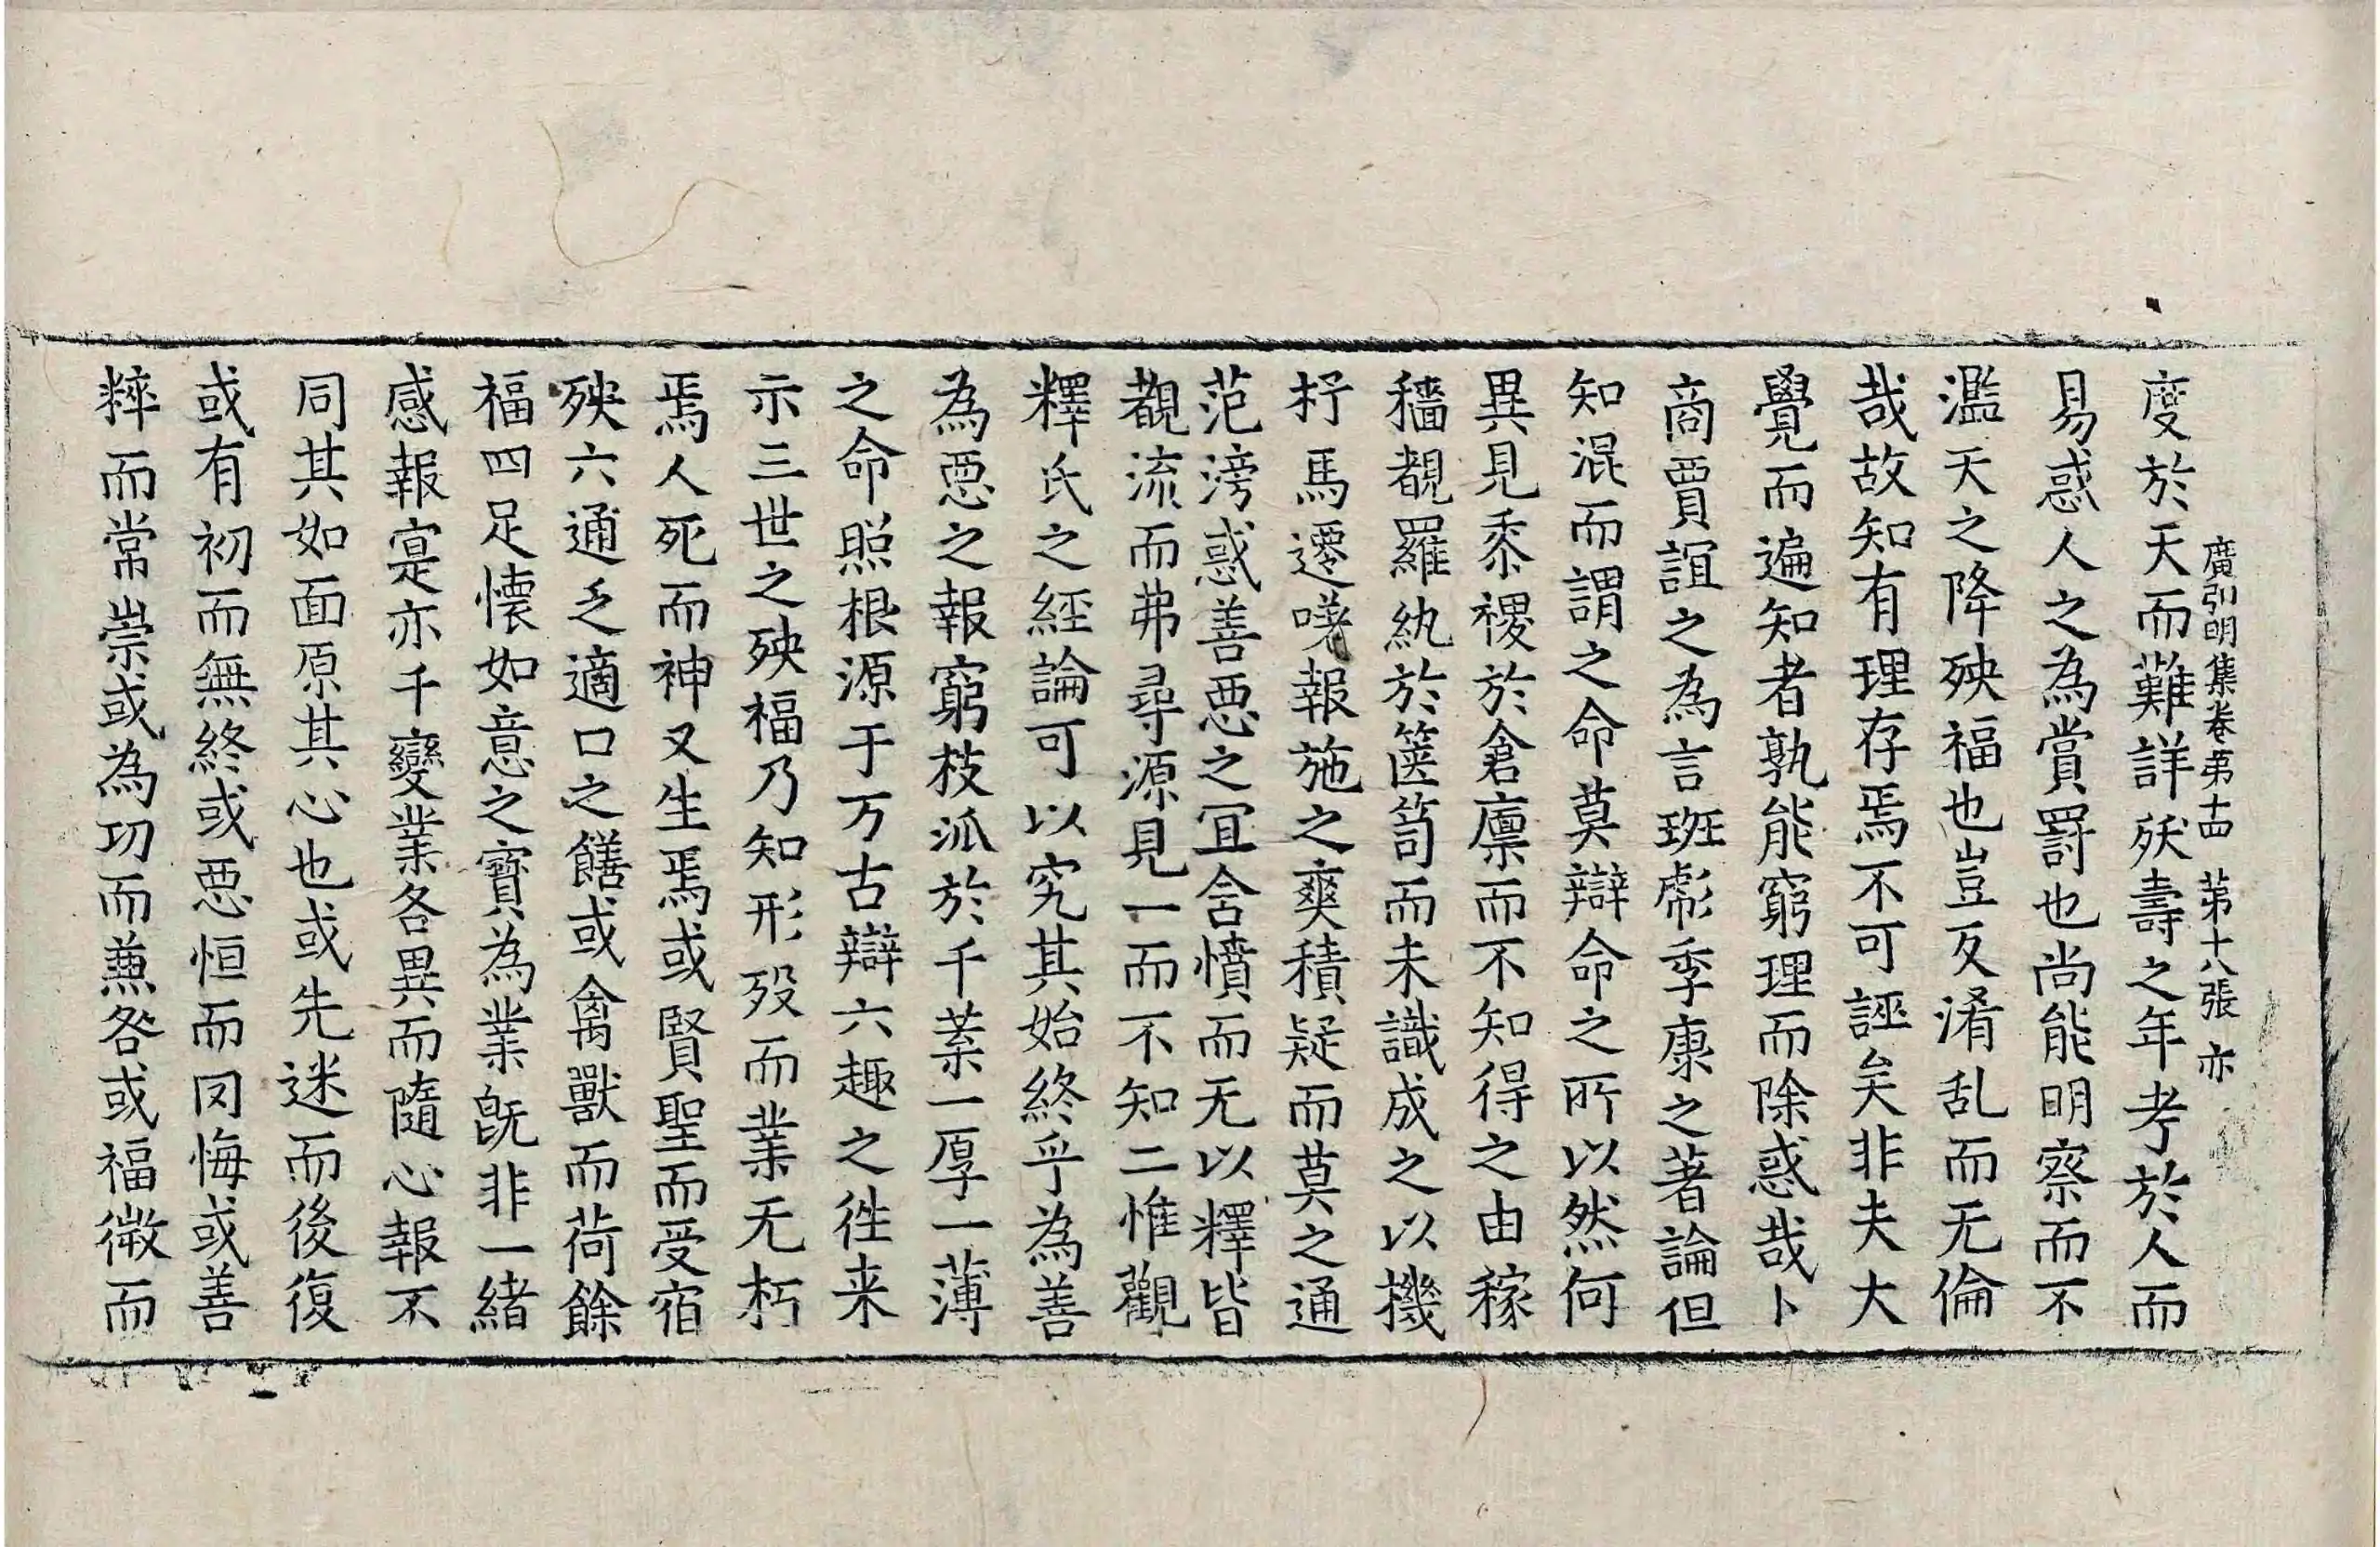 廣弘明集卷第十四　第十八張　亦
度於天而難詳殀壽之年考於人而
易惑人之為賞罰也尚能明察而不
濫天之降殃福也豈反淆乱而无倫
哉故知有理存焉不可誣矣非夫大
覺而遍知者孰能窮理而除惑哉卜
商賈誼之為言班彪季康之著論但
知混而謂之命莫辯命之所以然何
異見黍稷於倉廩而不知得之由稼
穡覩羅紈於篋笥而未識成之以機
杼馬遷嘆報施之爽積疑而莫之通
范滂惑善惡之冝舍憤而无以釋皆
覩流而弗尋源見一而不知二惟觀
釋氏之經論可以究其始終乎為善
為惡之報窮枝派於千葉一厚一薄
之命照根源于万古辯六趣之徃来
示三世之殃福乃知形歿而業无朽
焉人死而神又生焉或賢聖而受宿
殃六通乏適口之饍或禽獸而荷餘
福四足懷如意之寶為業旣非一緒
感報寔亦千變業各異而隨心報不
同其如面原其心也或先迷而後復
或有初而無終或惡恒而罔悔或善
粹而常崇或為功而兼咎或福徵而